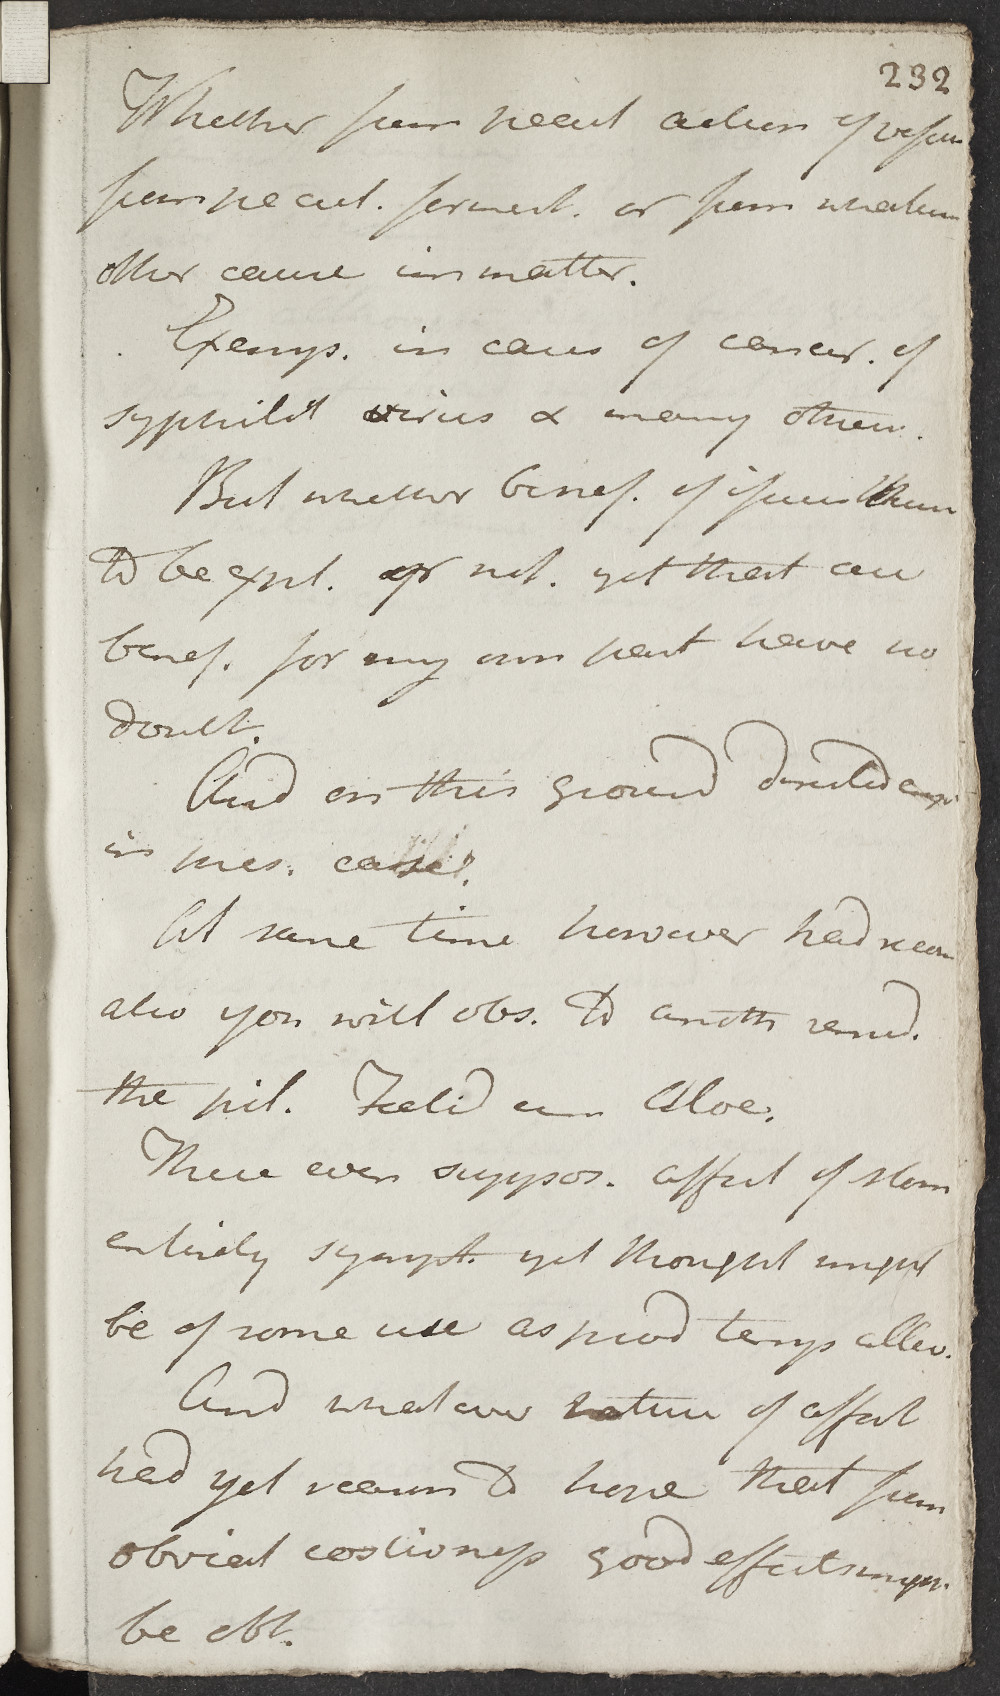 232
Whether from pecul action of vessels
from pecul. ferment. or from whatever
other cause imsmatter.
Exemp. in cases of cancer. of
syphilit virus & many others.
But whether benef. of issues thus
to be expl. or not. yet that are
benef. for my own part have no
doubt.
And on this ground directed
in pres. case.
At same time however had recour
also you will obs. to anoth remd.
the pil. Foetid cum Aloe.
There even suppos. affect of stom
entirely sympt. yet thought might
be of some use as prod temp allev.
And whatever nature of affect
had yet reason to hope that from
obviat costiveness good effects might
be obt.